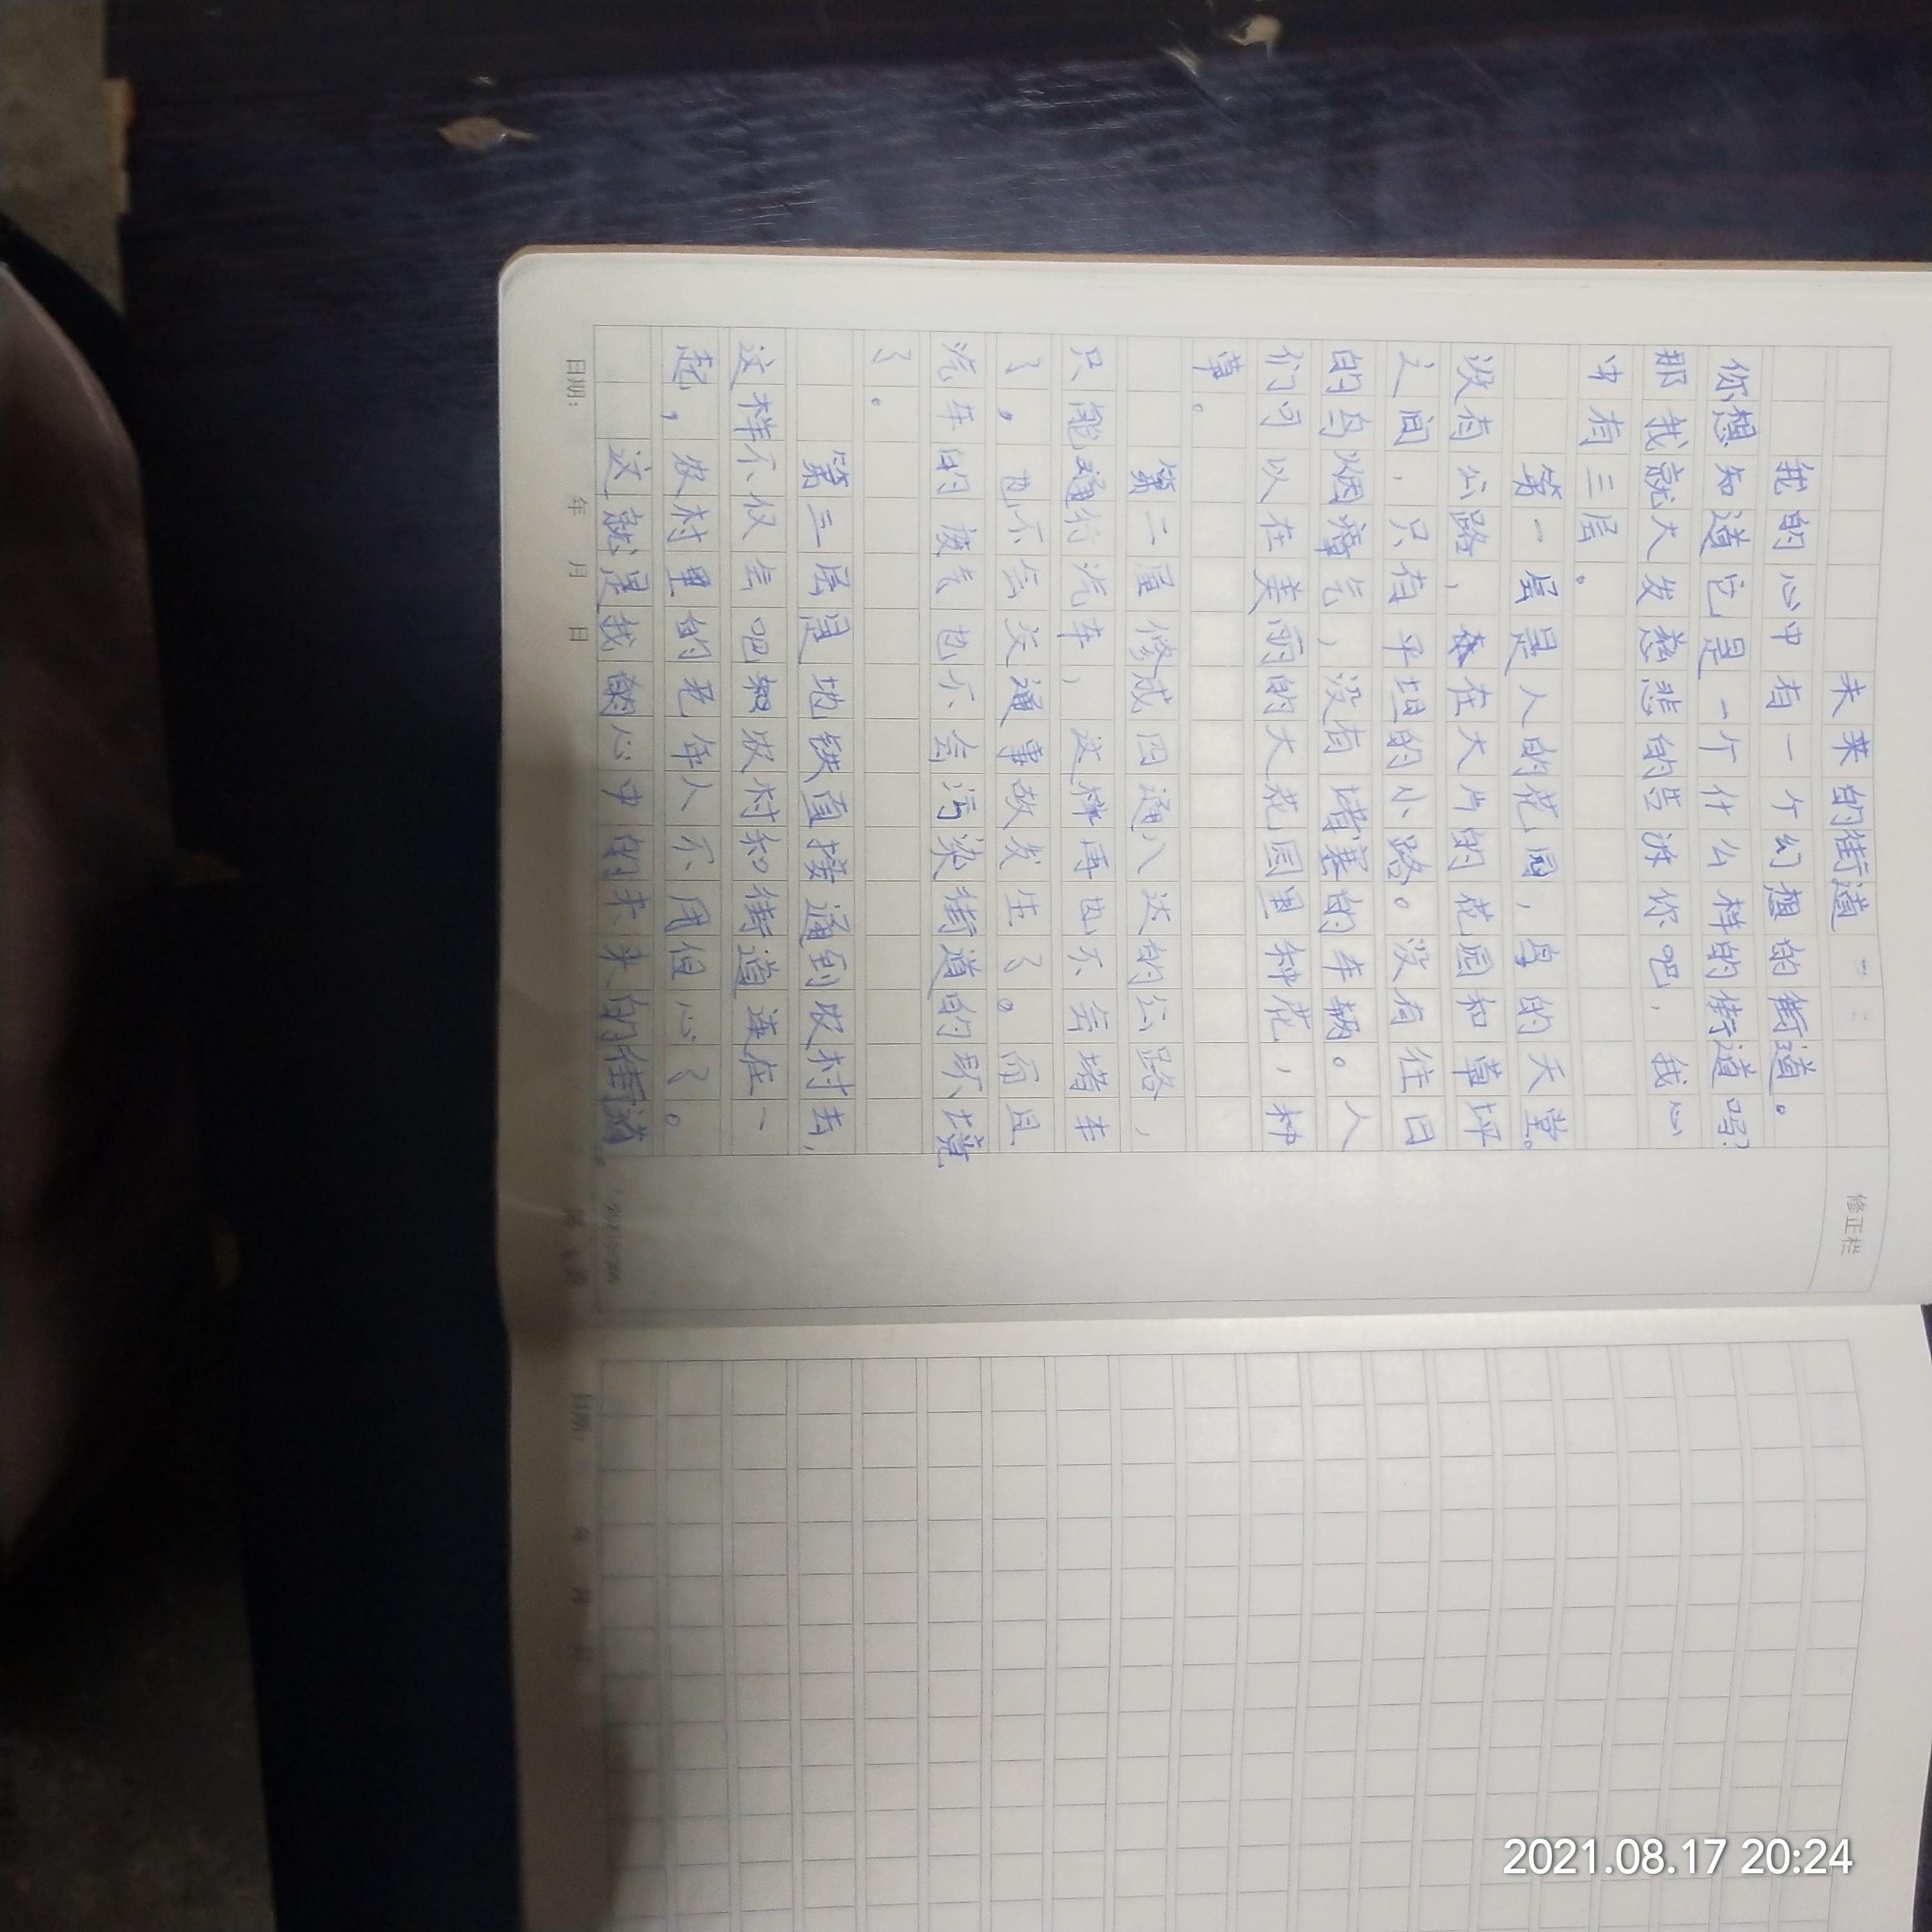 未来的街道
我的心中有一个幻想的街道。
你想知道它是一个什么样的街道吗?
那我就大发慈悲的告诉你吧,我心
中有三层。
第一层是人的花园,鸟的天堂。
没有公路,在大片的花园和草坪
之间,只有平坦的小路。没有往日
的乌烟瘴气,没有堵塞的车辆。人
们可以在美丽的大花园里种花,种
草。
第二层修成四通八达的公路,
只能通行汽车,这样再也不会堵车
了,也不会交通事故发生了。而且
汽车的废气也不会污染街道的环境
了。
第三层是地铁直接通到农村去,
这样不仅会吧农村和街道连在一
起,农村里的老年人不用但心了。
这就是我的心中的未来的街道。
修正栏
日期: 年 月 日
2021.08.17 20:24